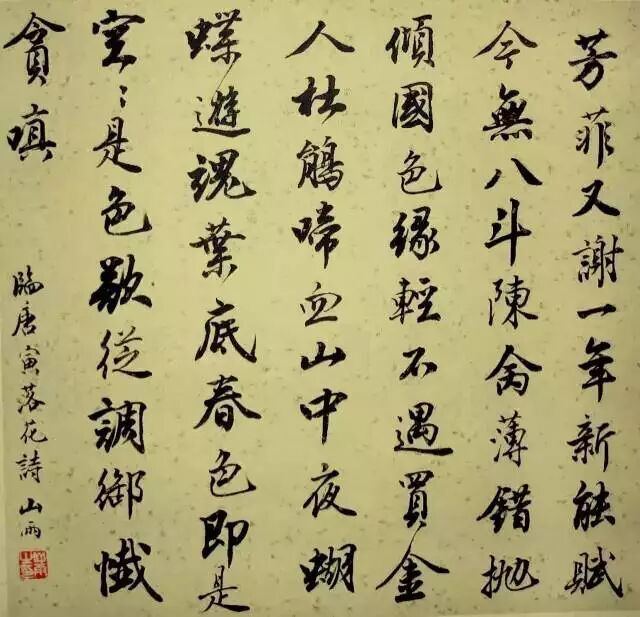 芳菲又謝一年新能賦
今無八斗陳薄錯拋
傾國色緣輕不遇買金
人杜鵑啼血山中夜蝴
蝶遊魂葉底春色即是
空〻是色從調御懺
貪嗔
臨唐寅落花詩 山雨